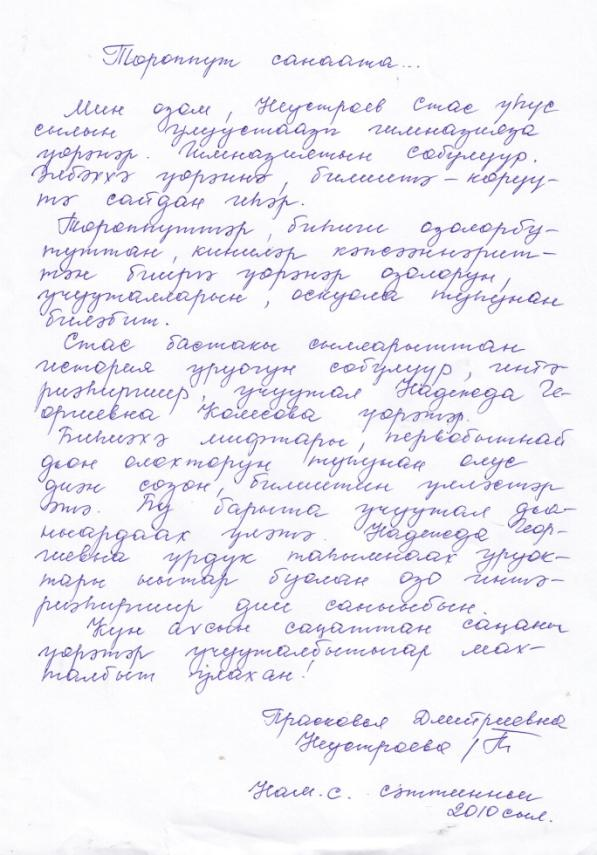 Төрөппүт санаата...
Мин оҕом, Неустроев Стас үһүс
сылын улуустааҕы гимназияҕа
үөрэнэр. Гимназиятын сөбүлүүр.
Элбэххэ үөрэннэ, билиитэ-көрүү-
тэ сайдан иһэр.
Төрөппүттэр, биһиги оҕолорбу-
туттан, кинилэр кэпсээннэрит-
тэн бииргэ үөрэнэр оҕолорун,
учууталларын, оскуола туһунан
билэбит.
Стас бастакы сылларыттан
история уруогун сөбүлүүр, интэ-
риэһиргиир, учуутал Надежда Ге-
оргиевна Колесова үөрэтэр.
Биһиэхэ мифтары, первобытнай
дьон олохторун туһунан олус
диэн сэҕэн, билиитин үллэстэр
этэ. Бу барыта учуутал дьа-
ныардаах үлэтэ. Надежда Геор-
гиевна үрдүк таһымнаах уруок-
тары ыытар буолан оҕо интэ-
риэһиргиир дии саныыбын.
Күн ахсын саҥаттан саҥаны
үөрэтэр учууталбытыгар мах-
талбыт улахан!
Прасковья Дмитриевна
Неустроева
Нам. с. сэтинньи
2010 сыл.